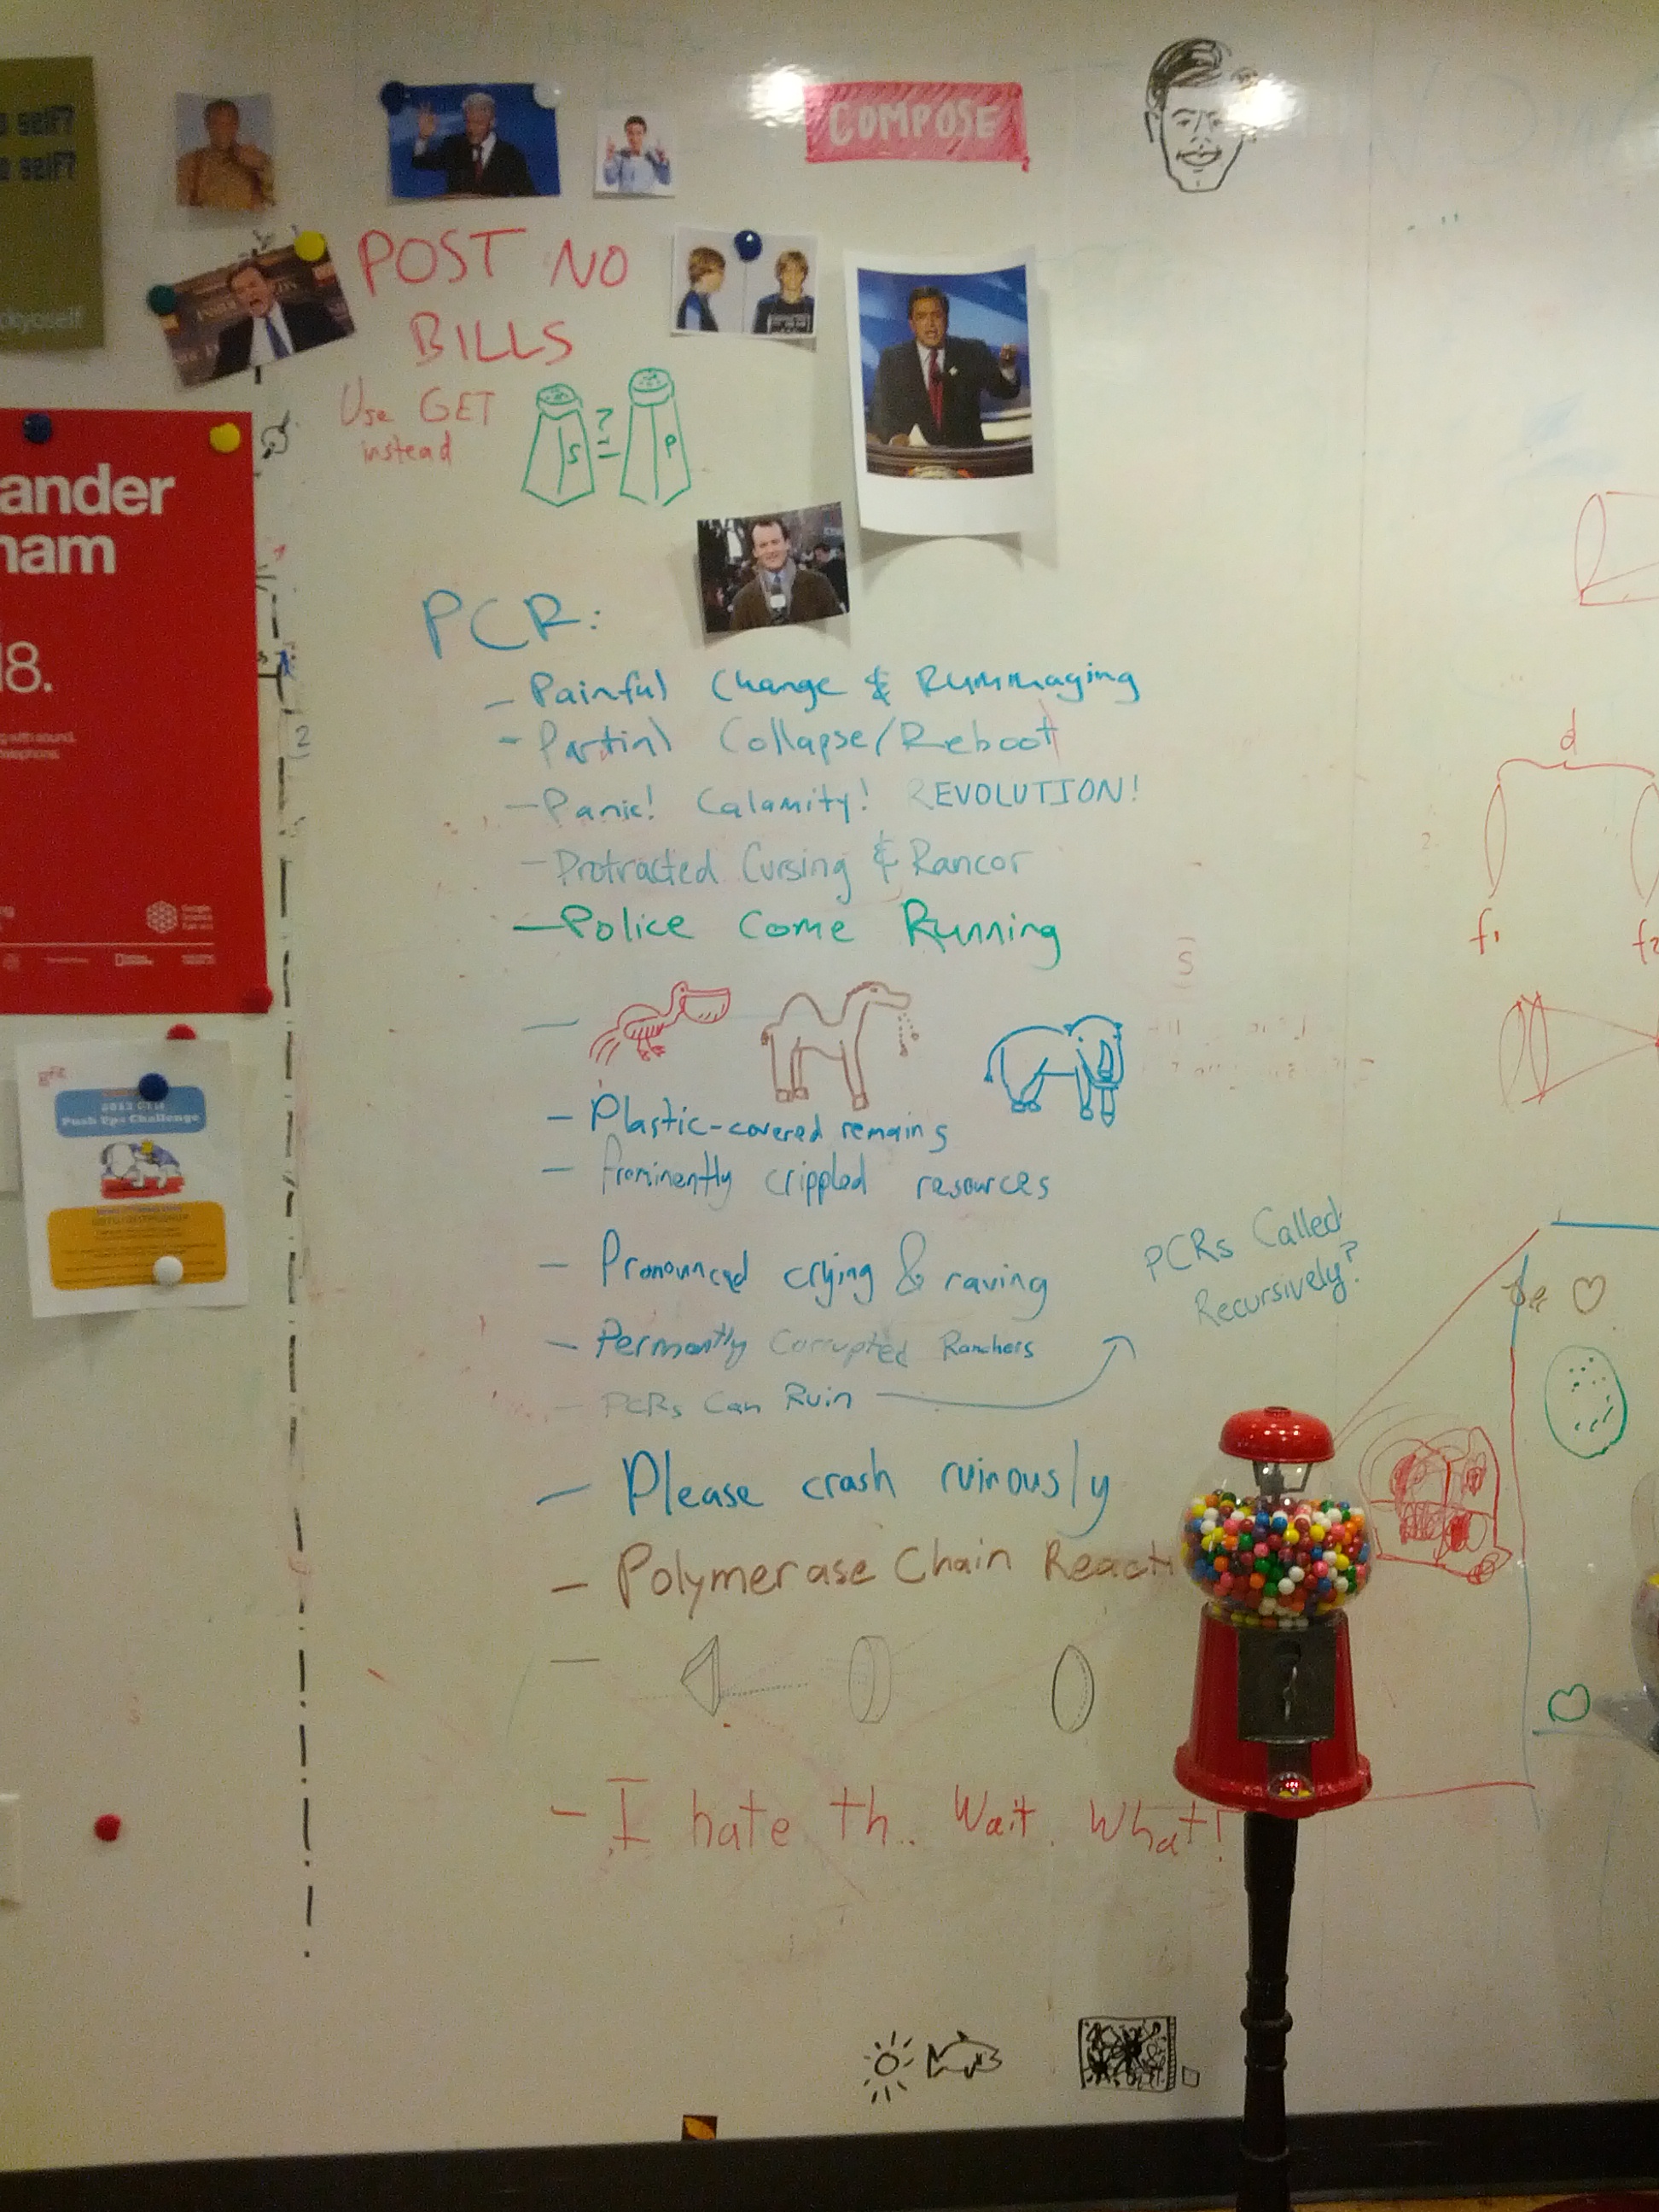 self?
self?
ckyoself
COMPOSE
POST NO
BILLS
Use GET
instead
S ?= P
ander
ham
18.
PCR:
- Painful Change & Rummaging
- Partial Collapse/Reboot
- Panic! Calamity! REVOLUTION!
- Protracted Cursing & Rancor
- Police Come Running
-
- Plastic-covered remains
- Prominently crippled resources
- Pronounced crying & raving
- Permantly Corrupted Ranchers
- PCRs Can Ruin
PCRs Called
Recursively?
- Please crash ruinously
- Polymerase Chain Reacti
-
- I hate th.. Wait. What!
Push Ups Challenge
Google
Science
d
f1
f2
S
2